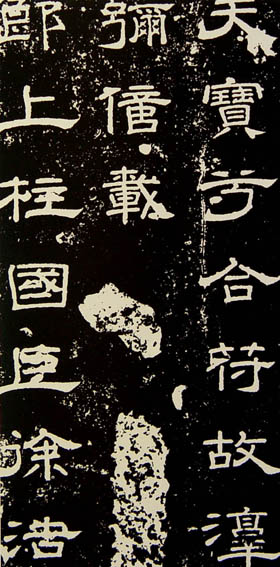 天寶兮合符故
彌億載
郎上柱國臣徐浩